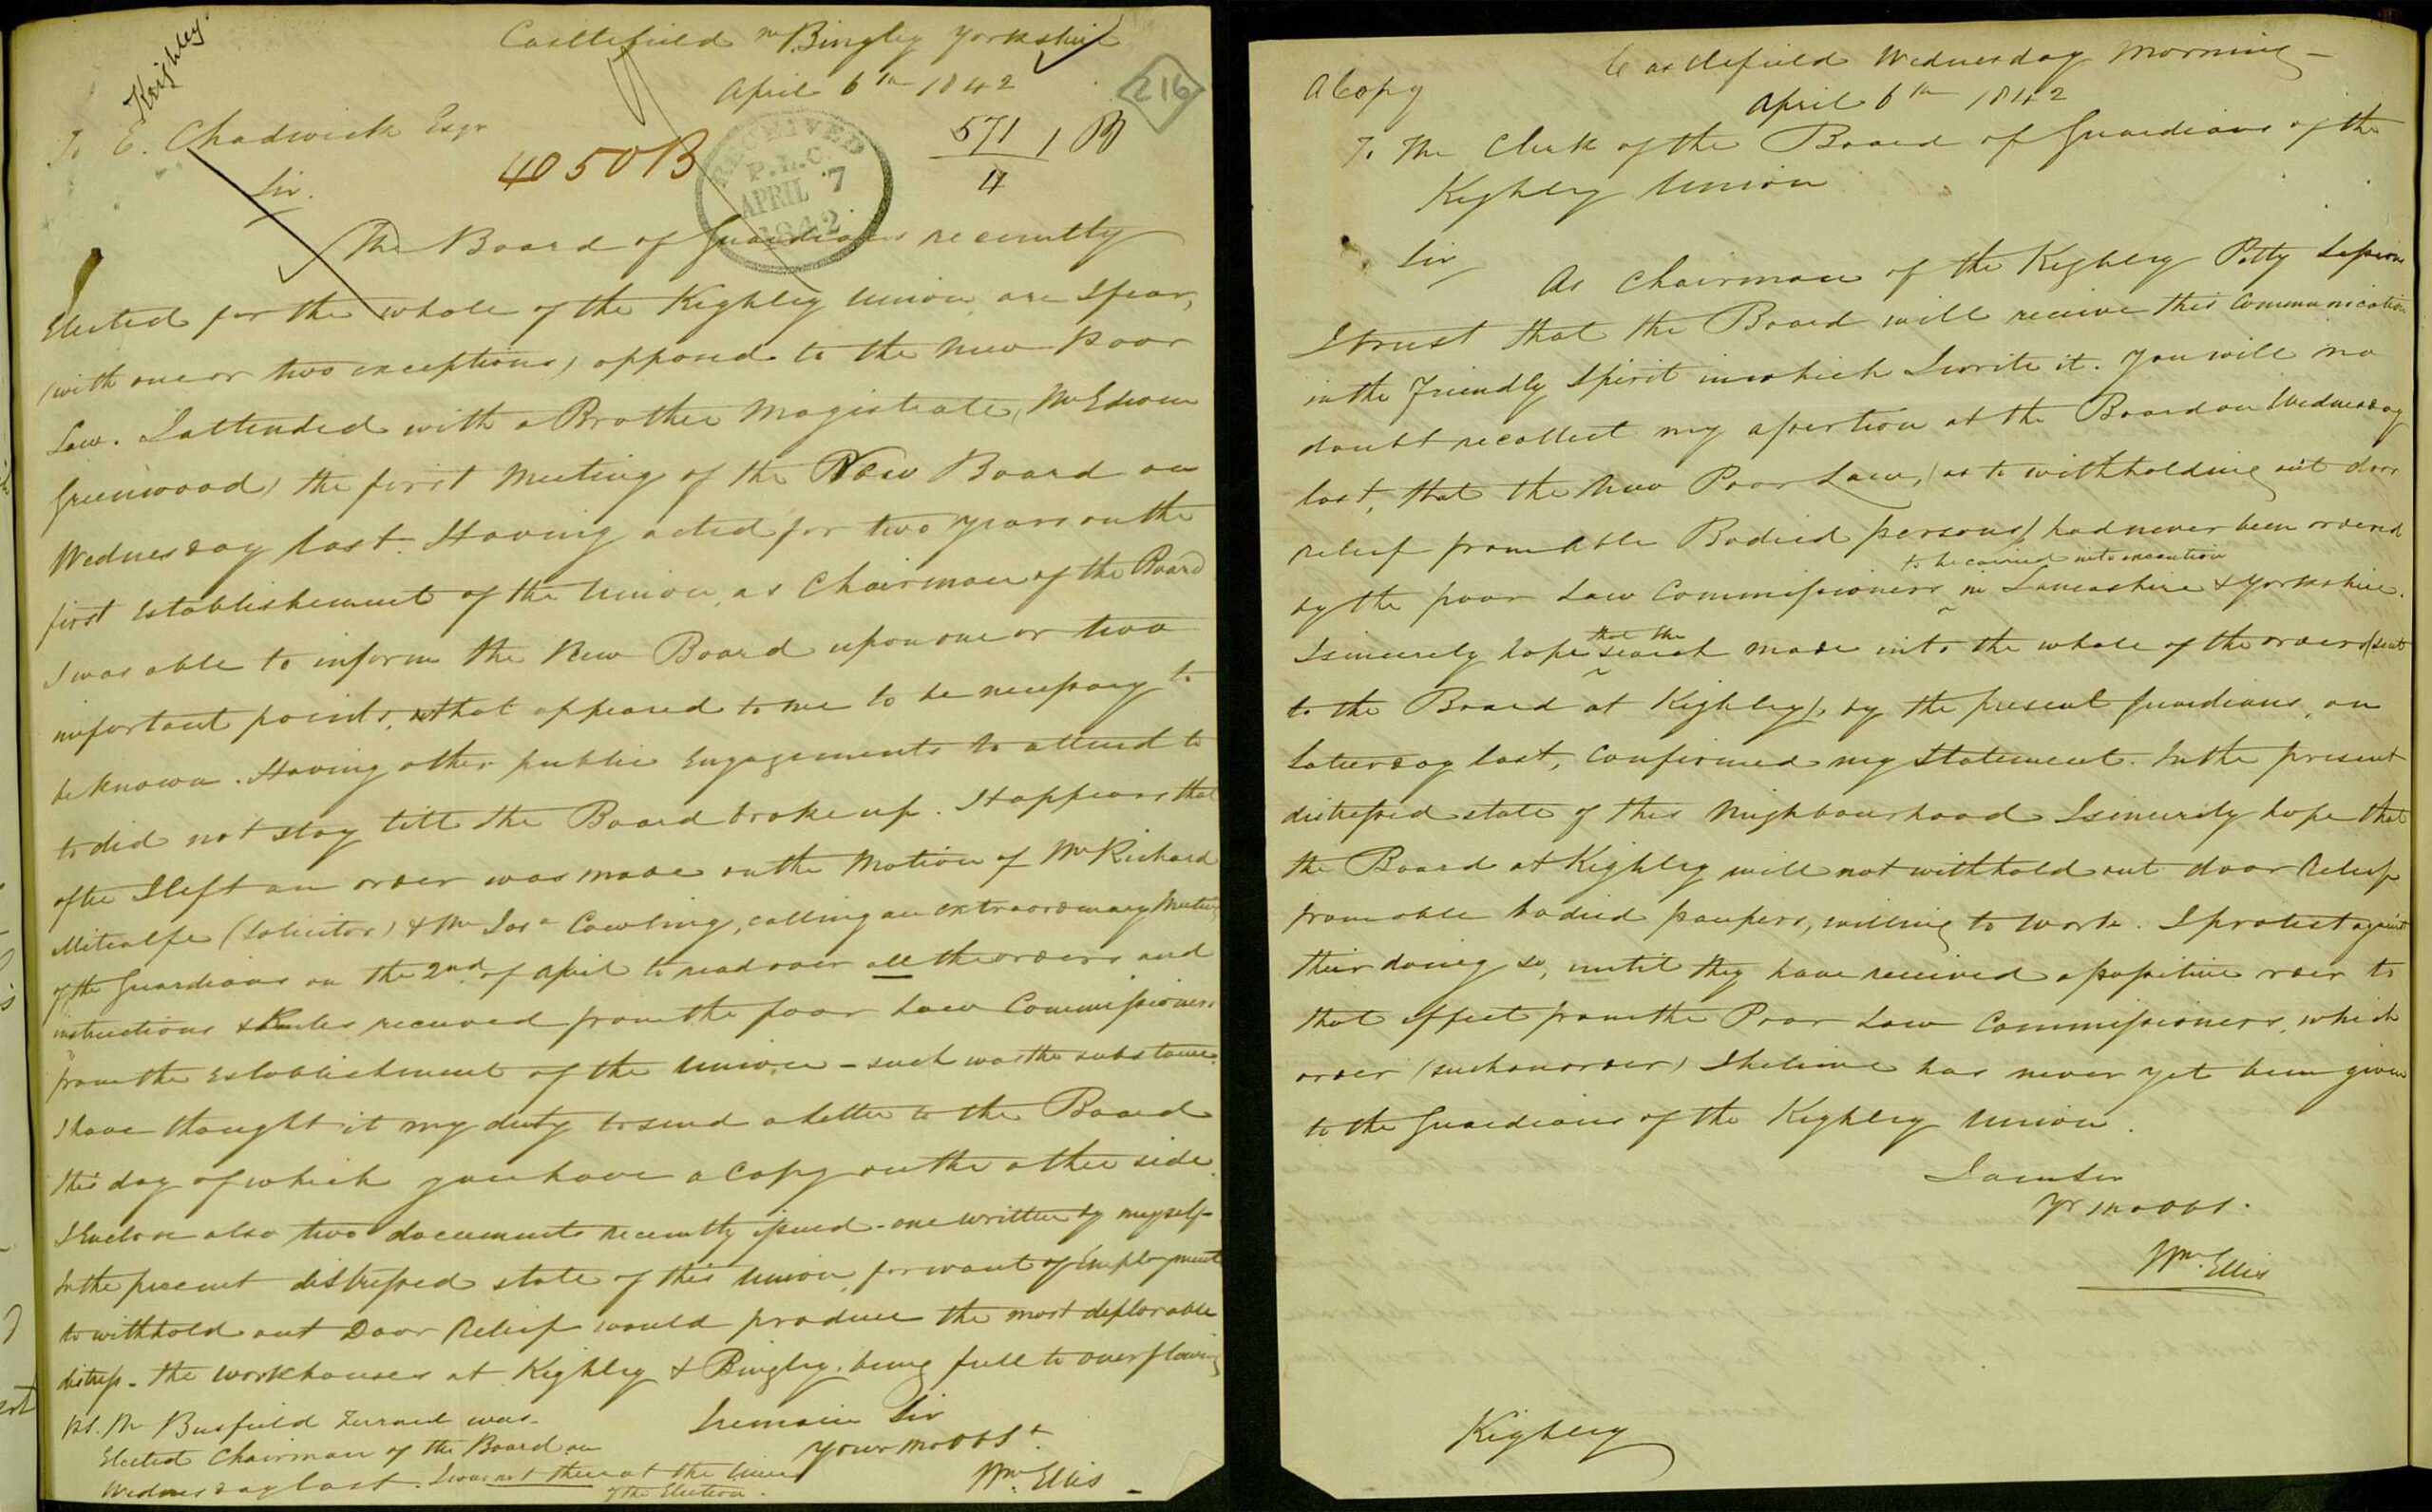 Keighley
Castlefield nr Bingley Yorkshire
April 6th 1842
216
To E. Chadwick Esqr
4050B
RECEIVED
P.L.C.
APRIL 7
1842
571 1 B
4
Sir.
The Board of Guardians recently
Elected for the whole of the Kighley Union are I fear,
(with one or two exceptions) opposed to the New Poor
Law. I attended with a Brother Magistrate, (Mr Edwin
Greenwood) the first Meeting of the New Board on
Wednesday last. Having acted for two years on the
first Establishment of the Union, as Chairman of the Board
I was able to inform the New Board upon one or two
important points, that appeared to me to be necessary to
be known. Having other public Engagements to attend to
to did not stay till the Board broke up. It appears that
after I left an order was made on the Motion of Mr Richard
Metcalfe (Solicitor) & Mr Josa Cowling, calling an extraordinary Meeting
of the Guardians on the 2nd of April to read over all the orders and
instructions & Rules received from the Poor Law Commissioners
from the Establishment of the Union - such was the substance.
I have thought it my duty to send a letter to the Board
this day of which you have a Copy on the other side.
I Enclose also two documents recently issued - one written by myself -
In the present distressed state of this Union, for want of Employment
to withhold out Door Relief would produce the most deplorable
distress - the workhouses at Kighley & Bingley being full to overflowing
I remain Sir
Your mo Obt St.
Wm. Ellis
P.S. Mr Busfield Ferrand was
Elected Chairman of the Board on
Wednesday last. I was not there at the time
of the Election.
A Copy
Castlefield Wednesday Morning -
April 6th 1842
To The Clerk of the Board of Guardians of the
Kighley Union
Sir
As Chairman of the Kighley Petty Sessions
I trust that the Board will receive this Communication
in the Friendly Spirit in which I write it. You will no
doubt recollect my assertion at the Board on Wednesday
last, that the New Poor Law, (as to withholding out door
relief from Able Bodied persons) had never been ordered
to be carried into execution
by the poor Law Commissioners in Lancashire & Yorkshire.
that the
I sincerely hope search made into the whole of the orders (sent
to the Board at Kighley), by the present Guardians, on
Saturday last, confirmed my Statement. In the present
distressed state of this Neighbourhood I sincerely hope that
the Board at Kighley will not withhold out door Relief
from able bodied paupers, willing to work. I protest against
their doing so, until they have received a positive order to
that effect from the Poor Law Commissioners, which
order (such an order) I believe has never yet been given
to the Guardians of the Kighley Union.
I am Sir
Yr mo Obt.
Wm. Ellis
Kighley